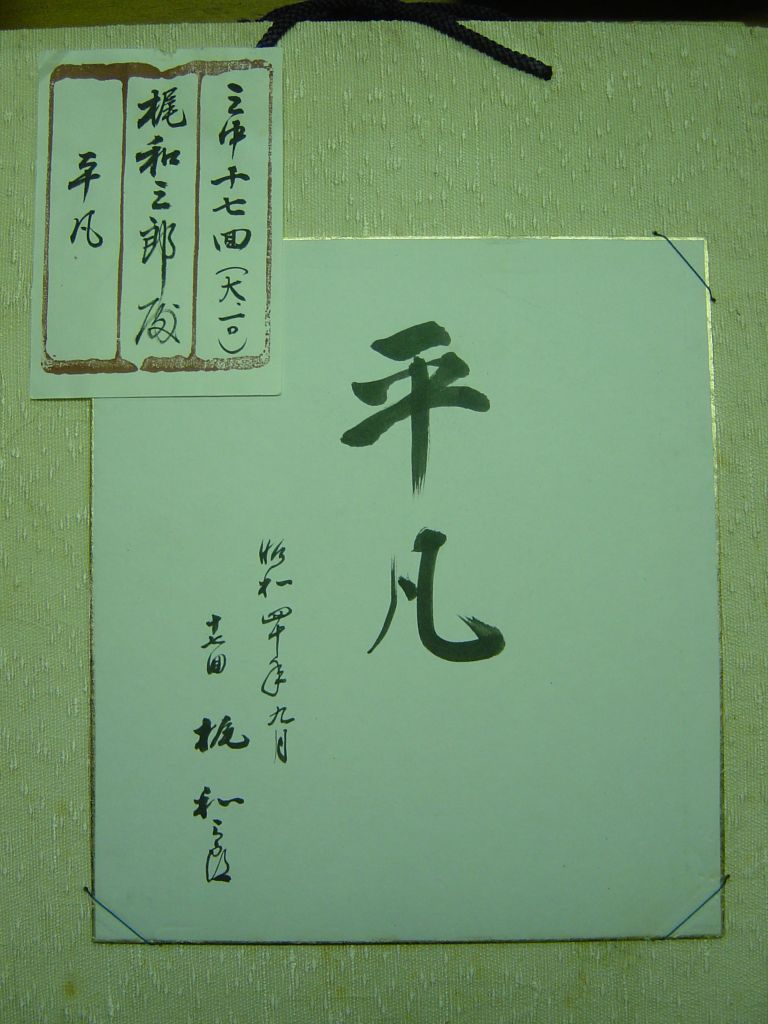 三中十七回(大、一〇)
梶和三郎殿
平凡
平凡
昭和四十年九月
十七回 梶和三郎